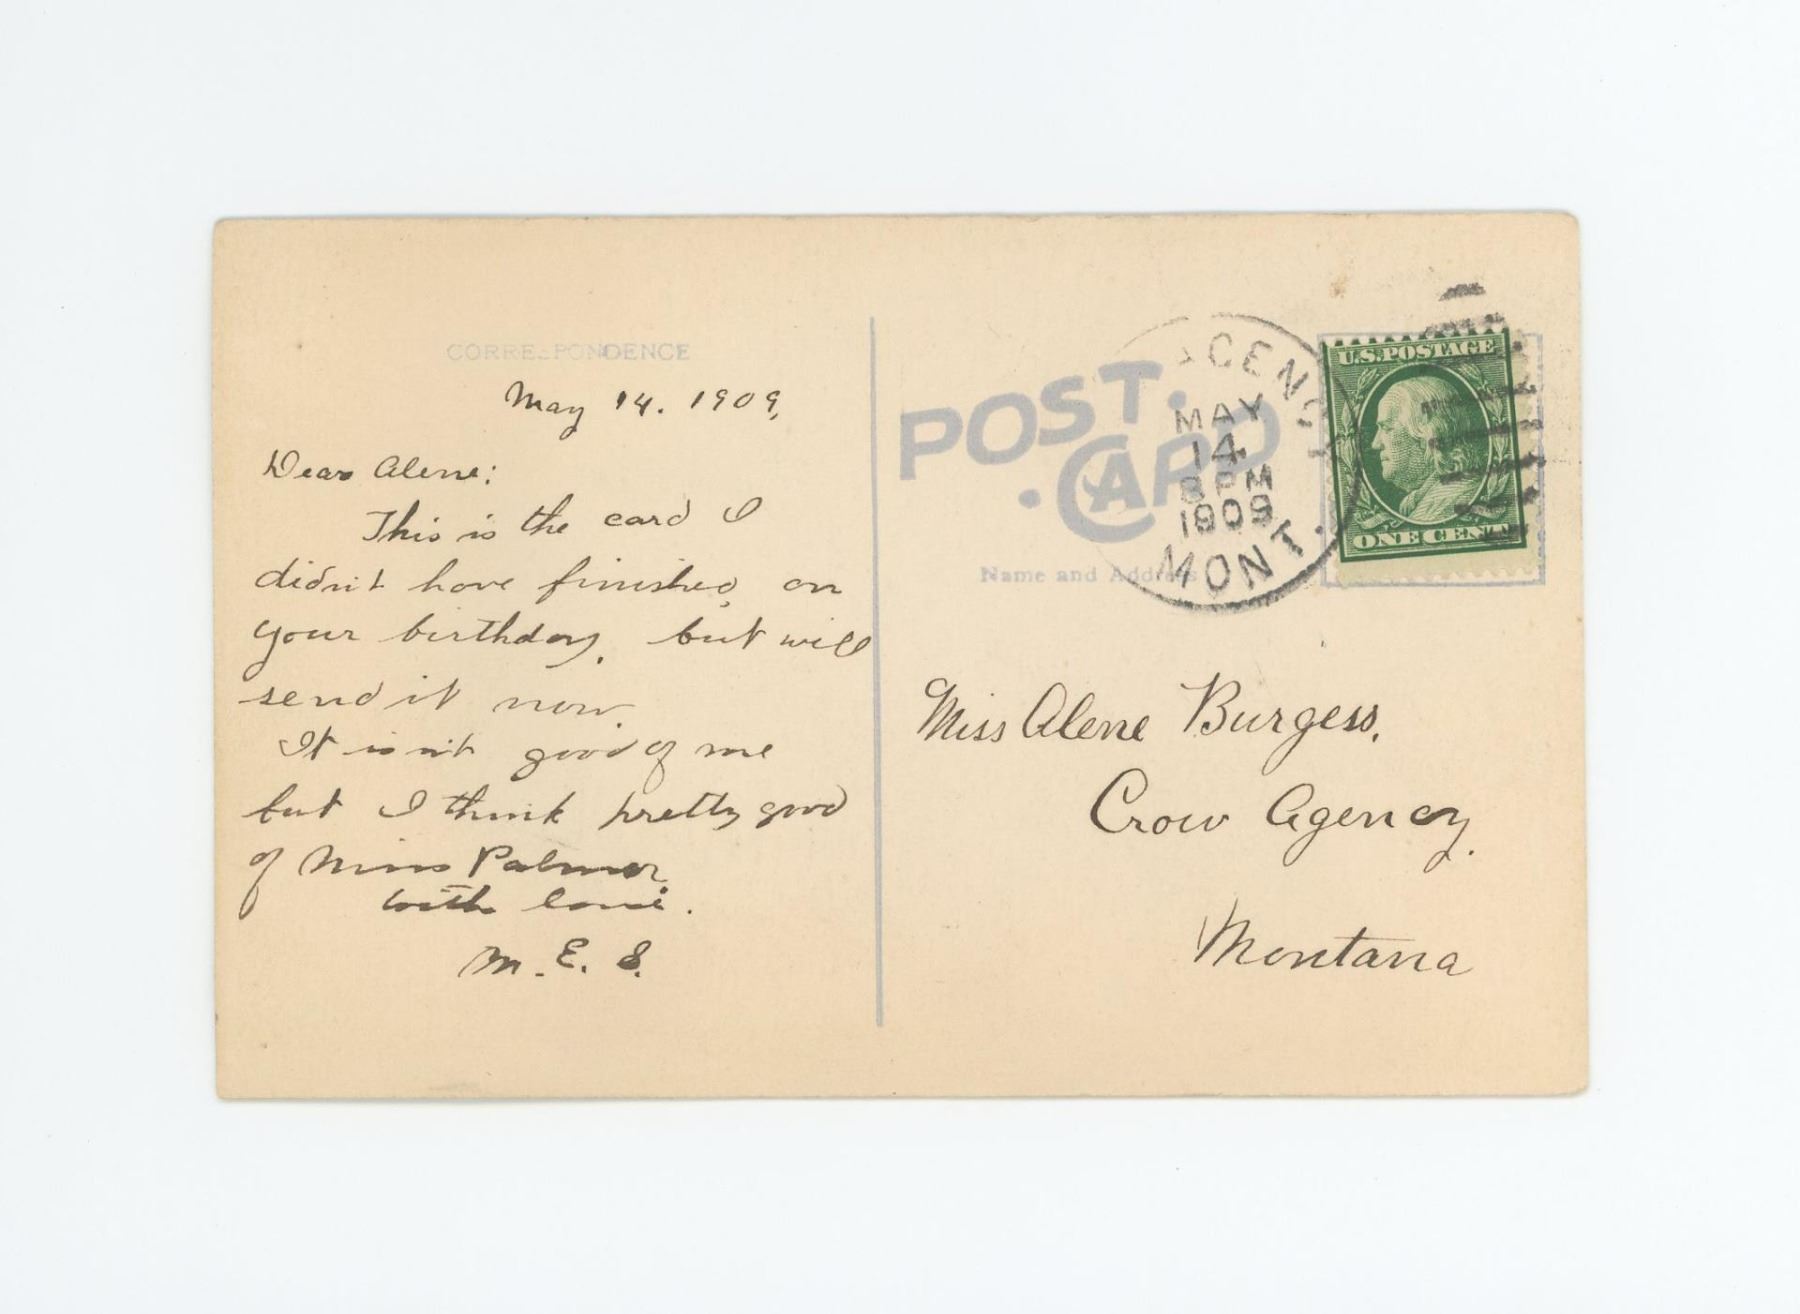 CORRESPONDENCE
May 14. 1909,
Dear Alene:
This is the card I
didn't have finished on
your birthday, but will
send it now.
It isn't good of me
but I think pretty good
of Miss Palmer
with love.
M. E. S.
POST.
.CARD
Name and Address
MAY
14
8 PM
1909
MONT.
U.S. POSTAGE
ONE CENT
Miss Alene Burgess,
Crow Agency,
Montana